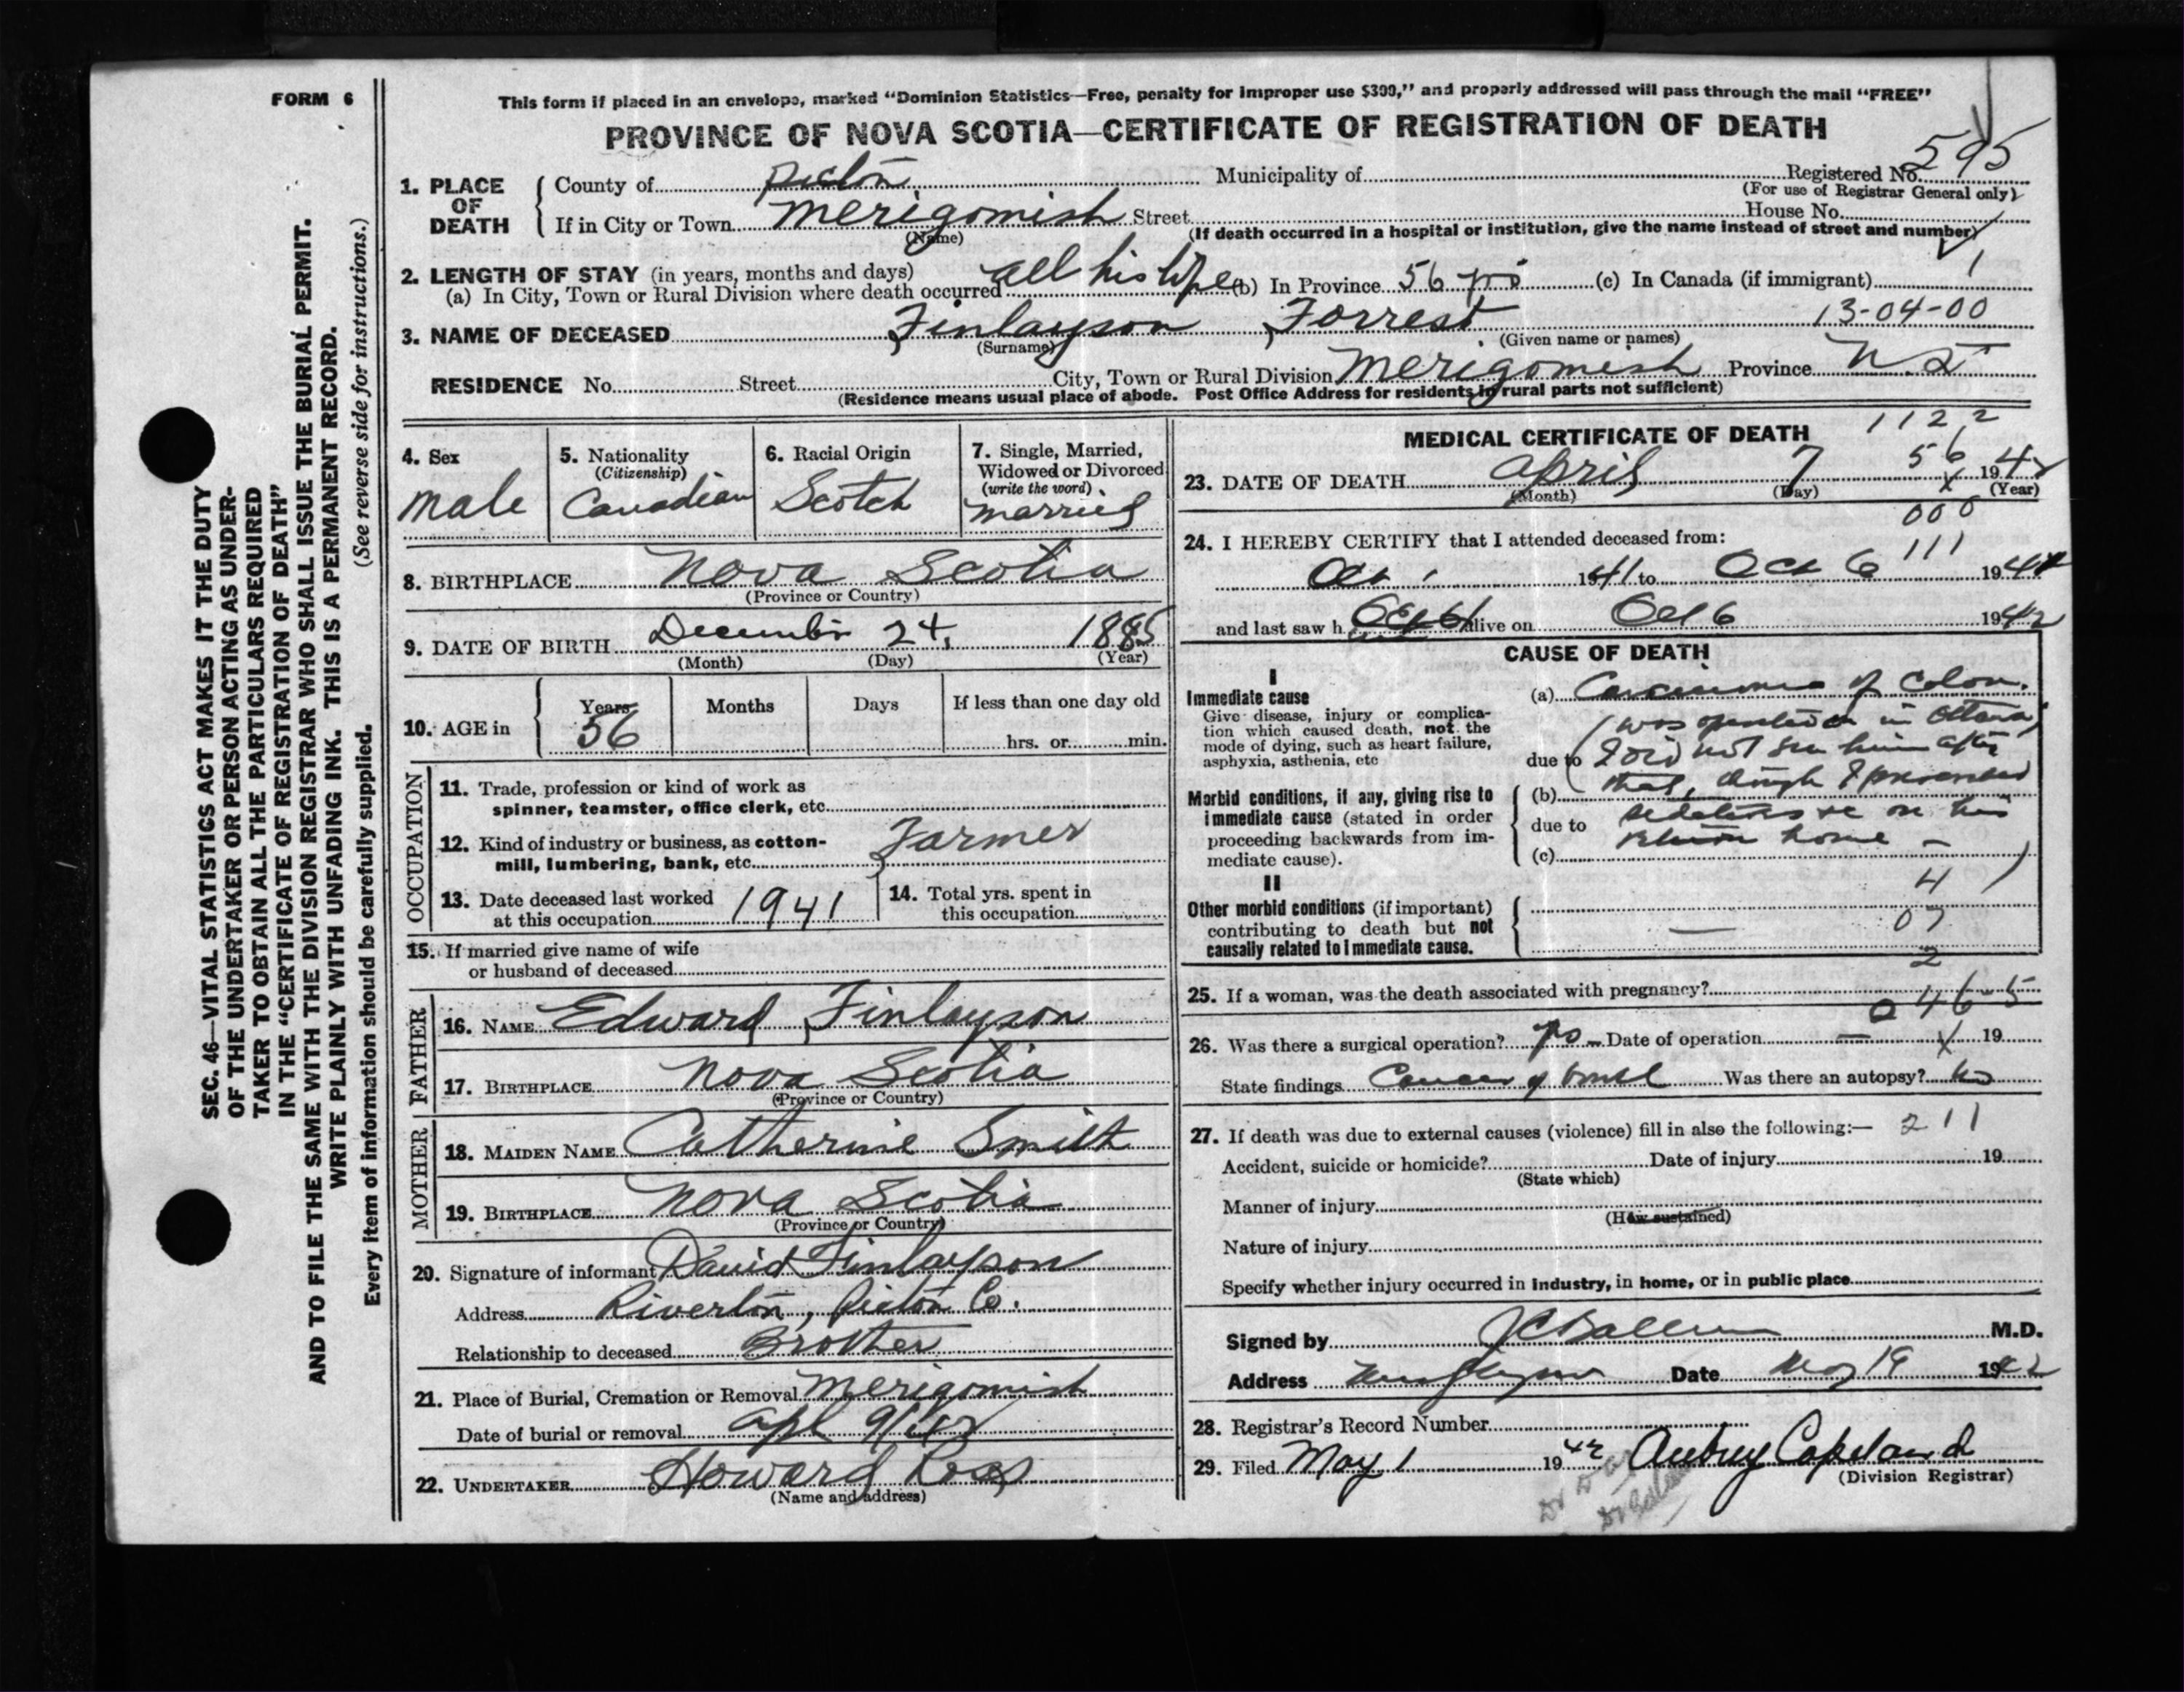 FORM 6
This form if placed in an envelope, marked "Dominion Statistics—Free, penalty for improper use $300," and properly addressed will pass through the mail "FREE"
PROVINCE OF NOVA SCOTIA—CERTIFICATE OF REGISTRATION OF DEATH
SEC. 46—VITAL STATISTICS ACT MAKES IT THE DUTY
OF THE UNDERTAKER OR PERSON ACTING AS UNDER-
TAKER TO OBTAIN ALL THE PARTICULARS REQUIRED
IN THE "CERTIFICATE OF REGISTRATION OF DEATH"
AND TO FILE THE SAME WITH THE DIVISION REGISTRAR WHO SHALL ISSUE THE BURIAL PERMIT.
WRITE PLAINLY WITH UNFADING INK. THIS IS A PERMANENT RECORD.
(See reverse side for instructions.)
Every item of information should be carefully supplied.
1. PLACE OF DEATH
County of Pictou Municipality of Registered No. 595
(For use of Registrar General only)
If in City or Town Merigomish Street House No.
(Name) (If death occurred in a hospital or institution, give the name instead of street and number)
2. LENGTH OF STAY (in years, months and days)
(a) In City, Town or Rural Division where death occurred all his life (b) In Province 56 yrs (c) In Canada (if immigrant) 1
13-04-00
3. NAME OF DECEASED Finlayson, Forrest
(Surname) (Given name or names)
RESIDENCE No. Street City, Town or Rural Division Merigomish Province N.S.
(Residence means usual place of abode. Post Office Address for residents in rural parts not sufficient)
4. Sex
male
5. Nationality
(Citizenship)
Canadian
6. Racial Origin
Scotch
7. Single, Married,
Widowed or Divorced
(write the word)
married
8. BIRTHPLACE Nova Scotia
(Province or Country)
9. DATE OF BIRTH December 24, 1885
(Month) (Day) (Year)
10. AGE in Years 56 Months Days If less than one day old
hrs. or min.
OCCUPATION
11. Trade, profession or kind of work as
spinner, teamster, office clerk, etc
12. Kind of industry or business, as cotton-
mill, lumbering, bank, etc. Farmer
13. Date deceased last worked
at this occupation 1941
14. Total yrs. spent in
this occupation
15. If married give name of wife
or husband of deceased
FATHER
16. NAME Edward Finlayson
17. BIRTHPLACE Nova Scotia
(Province or Country)
MOTHER
18. MAIDEN NAME Catherine Smith
19. BIRTHPLACE Nova Scotia
(Province or Country)
20. Signature of informant David Finlayson
Address Riverton, Pictou Co.
Relationship to deceased Brother
21. Place of Burial, Cremation or Removal Merigomish
Date of burial or removal Apl 9/42
22. UNDERTAKER Howard Ross
(Name and address)
MEDICAL CERTIFICATE OF DEATH
1122
56
23. DATE OF DEATH April 7 X 1942
(Month) (Day) (Year)
000
24. I HEREBY CERTIFY that I attended deceased from:
111
Oct 1 1941 to Oct 6 194
and last saw h alive on Oct 6 1942
CAUSE OF DEATH
I
Immediate cause
Give disease, injury or complica-
tion which caused death, not the
mode of dying, such as heart failure,
asphyxia, asthenia, etc
(a) Carcinoma of Colon.
(was operated on in Ottawa,
due to I did not see him after
Morbid conditions, if any, giving rise to
immediate cause (stated in order
proceeding backwards from im-
mediate cause).
(b) that, though I prescribed
due to sedatives on his
(c) return home —)
4
II
Other morbid conditions (if important)
contributing to death but not
causally related to immediate cause.
— 07
2
25. If a woman, was the death associated with pregnancy?
046-5
26. Was there a surgical operation? yes — Date of operation — X 19
State findings Cancer of bowel Was there an autopsy? no
27. If death was due to external causes (violence) fill in also the following:— 211
Accident, suicide or homicide? Date of injury 19
(State which)
Manner of injury
(How sustained)
Nature of injury
Specify whether injury occurred in industry, in home, or in public place
Signed by M.D.
Address New Glasgow Date May 19 1942
28. Registrar's Record Number
29. Filed May 1 1942 Aubrey Copeland
(Division Registrar)